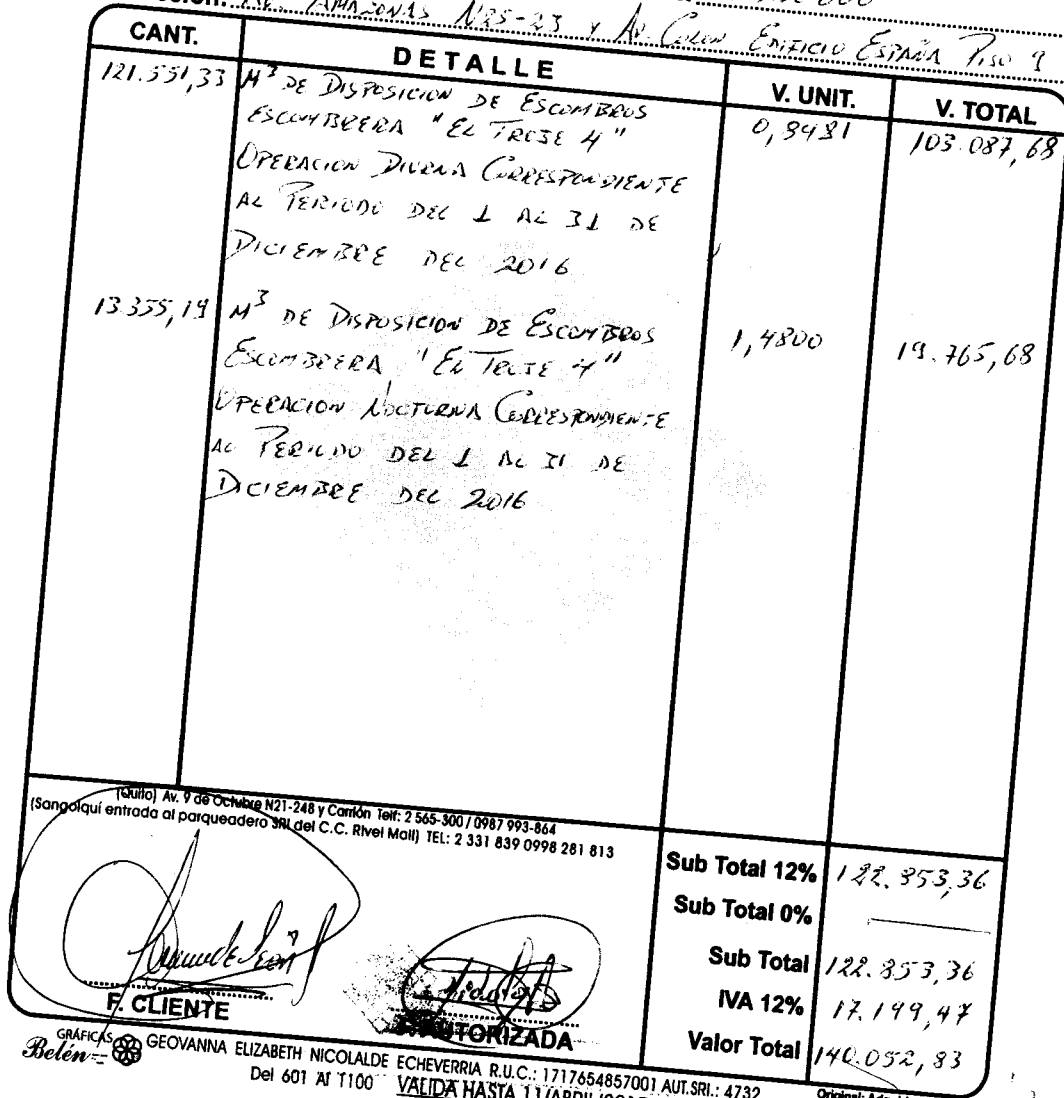 AMAZONAS N25-23 Y AV. COLON EDIFICIO ESPAÑA PISO 9
CANT. DETALLE V. UNIT. V. TOTAL
121.551,33 M³ DE DISPOSICION DE ESCOMBROS 0,8481 103.087,68
ESCOMBRERA "EL TROJE 4"
OPERACION DIURNA CORRESPONDIENTE
AL PERIODO DEL 1 AL 31 DE
DICIEMBRE DEL 2016
13.355,19 M³ DE DISPOSICION DE ESCOMBROS 1,4800 19.765,68
ESCOMBRERA "EL TROJE 4"
OPERACION NOCTURNA CORRESPONDIENTE
AL PERIODO DEL 1 AL 31 DE
DICIEMBRE DEL 2016
(Quito) Av. 9 de Octubre N21-248 y Carrión Telf: 2 565-300 / 0987 993-864
(Sangolquí entrada al parqueadero SRI del C.C. River Mall) TEL: 2 331 839 0998 281 813
Sub Total 12% 122.853,36
Sub Total 0%
Sub Total 122.853,36
IVA 12% 17.199,47
Valor Total 140.052,83
F. CLIENTE
AUTORIZADA
GRÁFICAS Belén GEOVANNA ELIZABETH NICOLALDE ECHEVERRIA R.U.C.: 1717654857001 AUT.SRI.: 4732
Del 601 Al 1100 VALIDA HASTA 11/ABRIL/
Original: